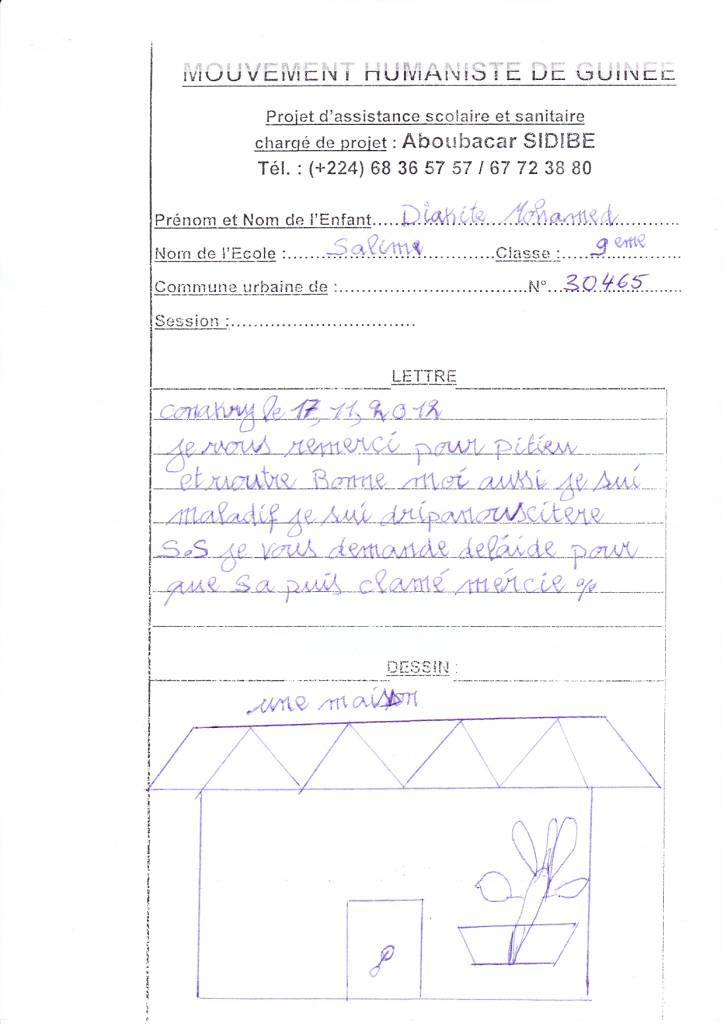 MOUVEMENT HUMANISTE DE GUINEE
Projet d'assistance scolaire et sanitaire
chargé de projet : Aboubacar SIDIBE
Tél. : (+224) 68 36 57 57 / 67 72 38 80
Prénom et Nom de l'Enfant.... Diakite Mohamed
Nom de l'Ecole :....... Salime ............Classe :..... 9eme
Commune urbaine de :................................N°.. 30465
Session :................................
LETTRE
conakry le 17, 11, 2012
je vous remerci pour pitieu
et Bonne moi aussi je sui
maladif je sui dripanouscitere
S.S je vous demande delaide pour
que sa puis clamé mércie
DESSIN :
une maison